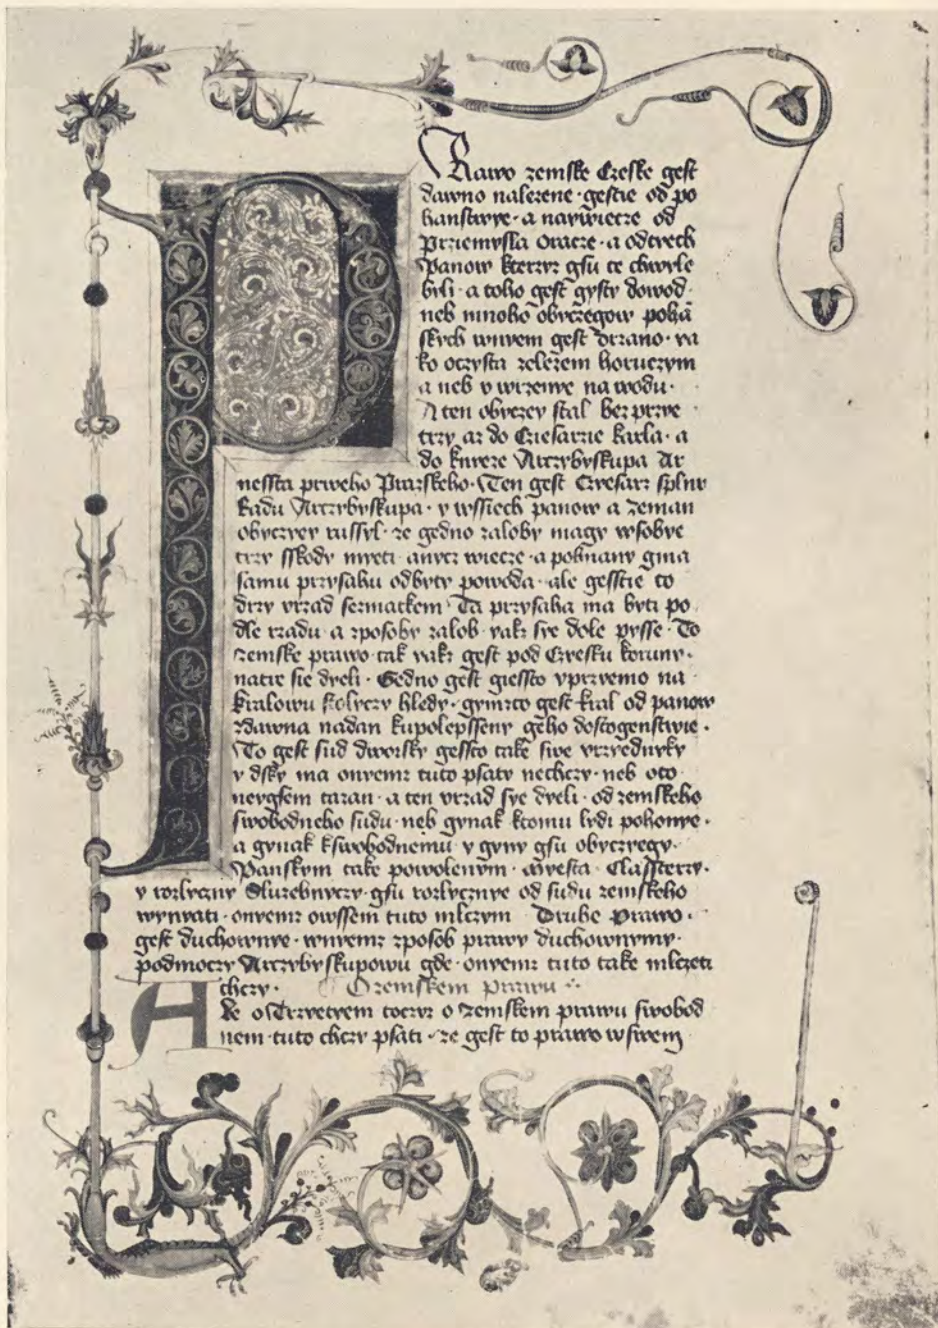 Prawo zemske Czeske gest
dawno nalezene · gestie od po
hanstwye · a naywiecze od
Przemysla Oracze · a od tiech
Panow kterzyz gsu te chwyle
byli · a toho gest gysty dowod
neb mnoho obyczegow pohā
skych wnyem gest drzano · ya
ko oczysta zelezem horuczym
a neb v wrzenye na wodu ·
A ten obyczey stal bez przye
trzy az do Cziesarzie karla · a
do knyeze Arczybyskupa Ar
nessta prweho Prazskeho · Ten gest Czyesarz splny
Radu Arczybyskupa · y wssiech panow a zeman
obyczyey russyl · ze gedno zaloby magy wsobye
trzy sskody myeti · anyz wiecze · a pohnany gma
samu przysahu odbyty powoda · ale gesstie to
drzy vrzad sermatkem Ta przysaha ma byti po
dle rzadu · a zposoby zalob yakz sye dole pysse · To
zemske prawo tak yakz gest pod Czesku korunu ·
natre sie dyeli · Gedno gest giessto vprzyemo na
kralowu stolyczy hledy · gymzto gest kral od panow
zdawna nadan kupolepsseny geho dostogenstwie ·
To gest sud dworsky gessto take swe vrzyednyky
y dsky ma onyemz tuto psaty nechczy · neb oto
neygsem tazan · a ten vrzad sye dyeli · od zemskeho
swobodneho sudu · neb gynak ktomu lydi pohonye ·
a gynak kswobodnemu y gyny gsu obyczegy ·
Panskym take powolenym · myesta · Classtery ·
y rozlyczny Sluzebnyczy · gsu rozlycznye od sudu zemskeho
wynyati · onyemz owssem tuto mlczym Druhe Prawo ·
gest duchownye · wnyemz zposob prawy duchownymy ·
podmoczy Arczybyskupowu gde · onyemz tuto take mlczeti
chczy · O zemskem prawu ·
Ale o Trzyetyem toczyz o zemskem prawu swobod
nem · tuto chczy psati · ze gest to prawo wswem